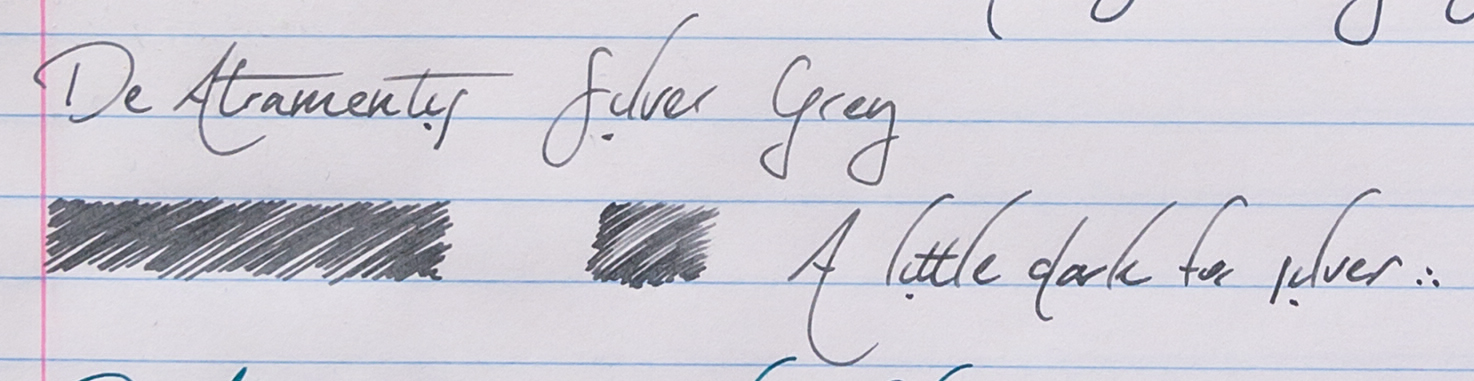 De Atramentis Silver Grey
A little dark for silver :.